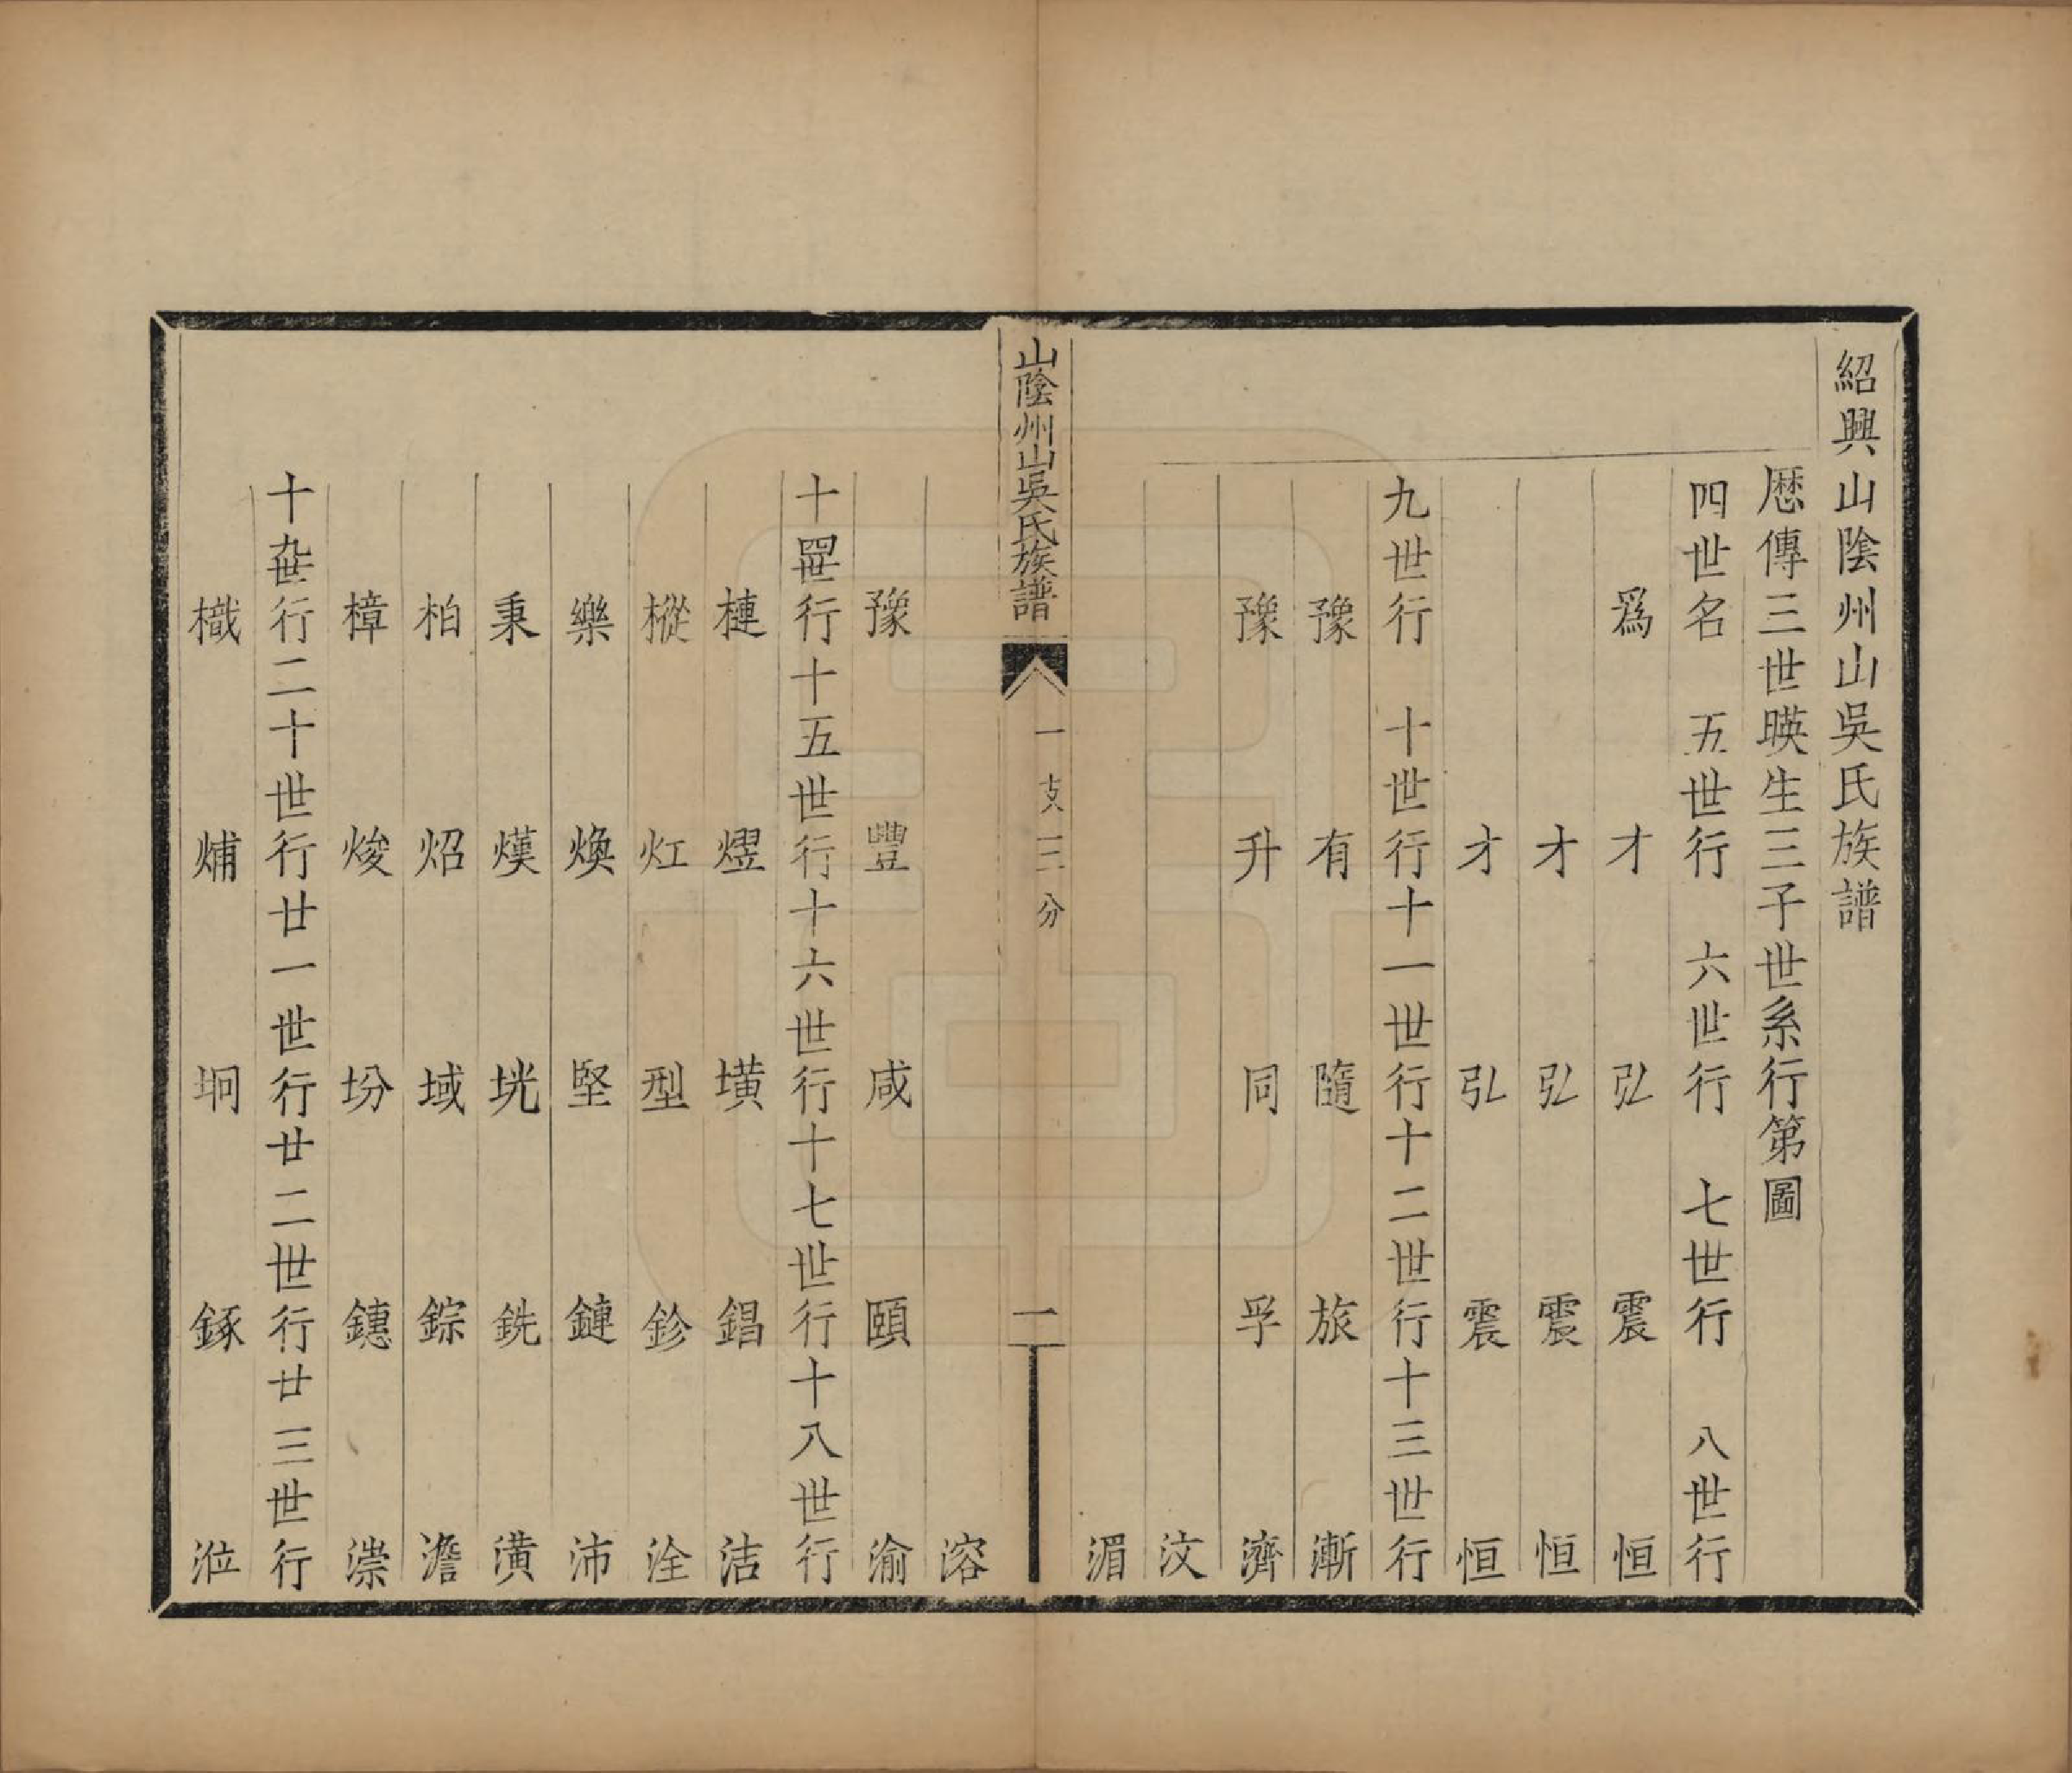 紹興山陰州山吳氏族譜
歷傳三世暎生三子世系行第圖
四世名 五世行 六世行 七世行 八世行
爲 才 弘 震 恒
才 弘 震 恒
才 弘 震 恒
九世行 十世行 十一世行 十二世行 十三世行
豫 有 隨 旅 漸
豫 升 同 孚 濟
汶
湄
山陰州山吳氏族譜 一支三分 一
溶
豫 豐 咸 頤 渝
十四世行 十五世行 十六世行 十七世行 十八世行
槤 熤 墴 錩 洁
樅 灴 型 鉁 洤
樂 煥 堅 鏈 沛
秉 熯 垙 銑 潢
柏 炤 域 錝 澹
樟 焌 坋 鏸 漴
十九世行 二十世行 廿一世行 廿二世行 廿三世行
樴 烳 坰 鋷 涖